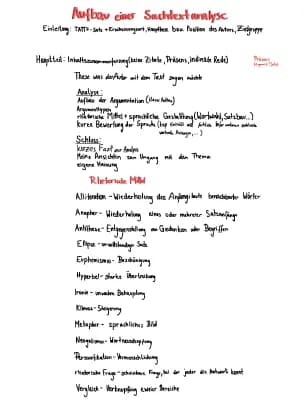 Aufbau einer Sachtextanalyse
Einleitung: TATTE-Satz + Erscheinungsort, Hauptthese bzw. Position des Autors, Zielgruppe
Hauptteil: Inhaltszusammenfassung (keine Zitate, Präsens, indirekte Rede)
Präsens
These was der Autor mit dem Text sagen möchte
Analyse:
Aufbau der Argumentation
Argumenttypen
rhetorische Mittel + sprachliche Gestaltung (Wortwahl, Satzbau...)
kurze Bewertung der Sprache
Schluss:
kurzes Fazit zur Analyse
Meine Ansichten zum Umgang mit dem Thema
eigene Meinung
Rhetorische Mittel
Alliteration - Wiederholung des Anfangslauts benachbarter Wörter
Anapher - Wiederholung eines oder mehrerer Satzanfänge
Antithese - Entgegenstellung von Gedanken oder Begriffen
Ellipse - unvollständiger Satz
Euphemismus - Beschönigung
Hyperbel - starke Übertreibung
Ironie - unwahre Behauptung
Klimax - Steigerung
Metapher - sprachliches Bild
Neogolismus - Wortneuschöpfung
Personifikation - Vermenschlichung
rhetorische Frage - scheinbare Frage, bei der jeder die Antwort kennt
Vergleich - Verknüpfung zweier Bereiche